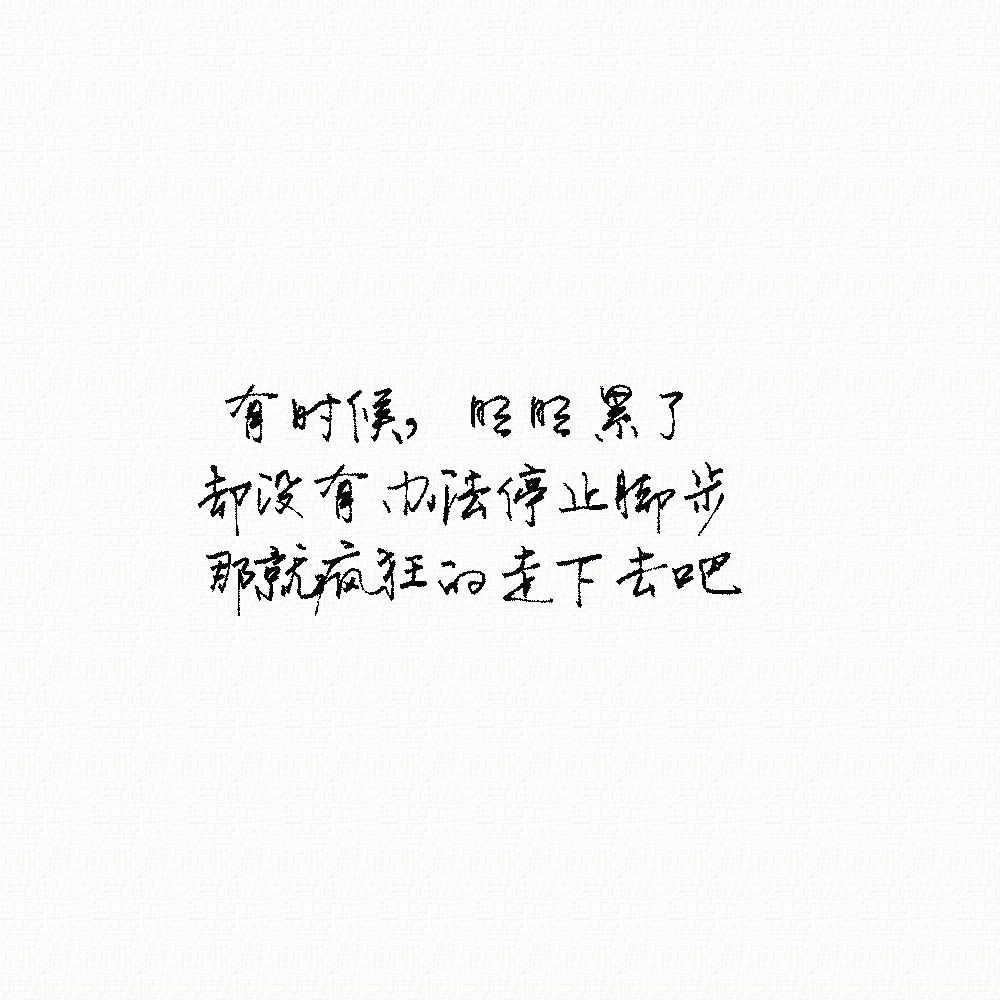 有时候，明明累了
却没有办法停止脚步
那就疯狂的走下去吧